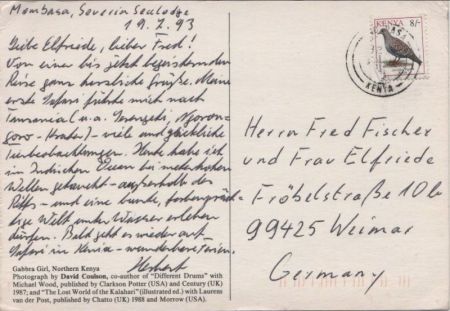 Mombasa, Severin Sealodge
19.7.93
Liebe Elfriede, lieber Fred!
Von einer bis jetzt begeisternden
Reise ganz herzliche Grüße. Meine
erste Safari führte mich nach
Tansania (u.a. Serengeti, Ngoron-
goro-Krater) - viele und glückliche
Tierbeobachtungen. Heute habe ich
im Indischen Ozean bei meterhohen
Wellen getaucht - außerhalb des
Riffs - und eine bunte, farbenpräch-
tige Welt unter Wasser erleben
dürfen. Bald geht es wieder auf
Safari in Kenia - wunderbare Ferien.
Herbert
Gabbra Girl, Northern Kenya
Photograph by David Coulson, co-author of "Different Drums" with
Michael Wood, published by Clarkson Potter (USA) and Century (UK)
1987; and "The Lost World of the Kalahari" (illustrated ed.) with Laurens
van der Post, published by Chatto (UK) 1988 and Morrow (USA).
KENYA 8/-
KENYA
Herrn Fred Fischer
und Frau Elfriede
Fröbelstraße 10b
99425 Weimar
Germany